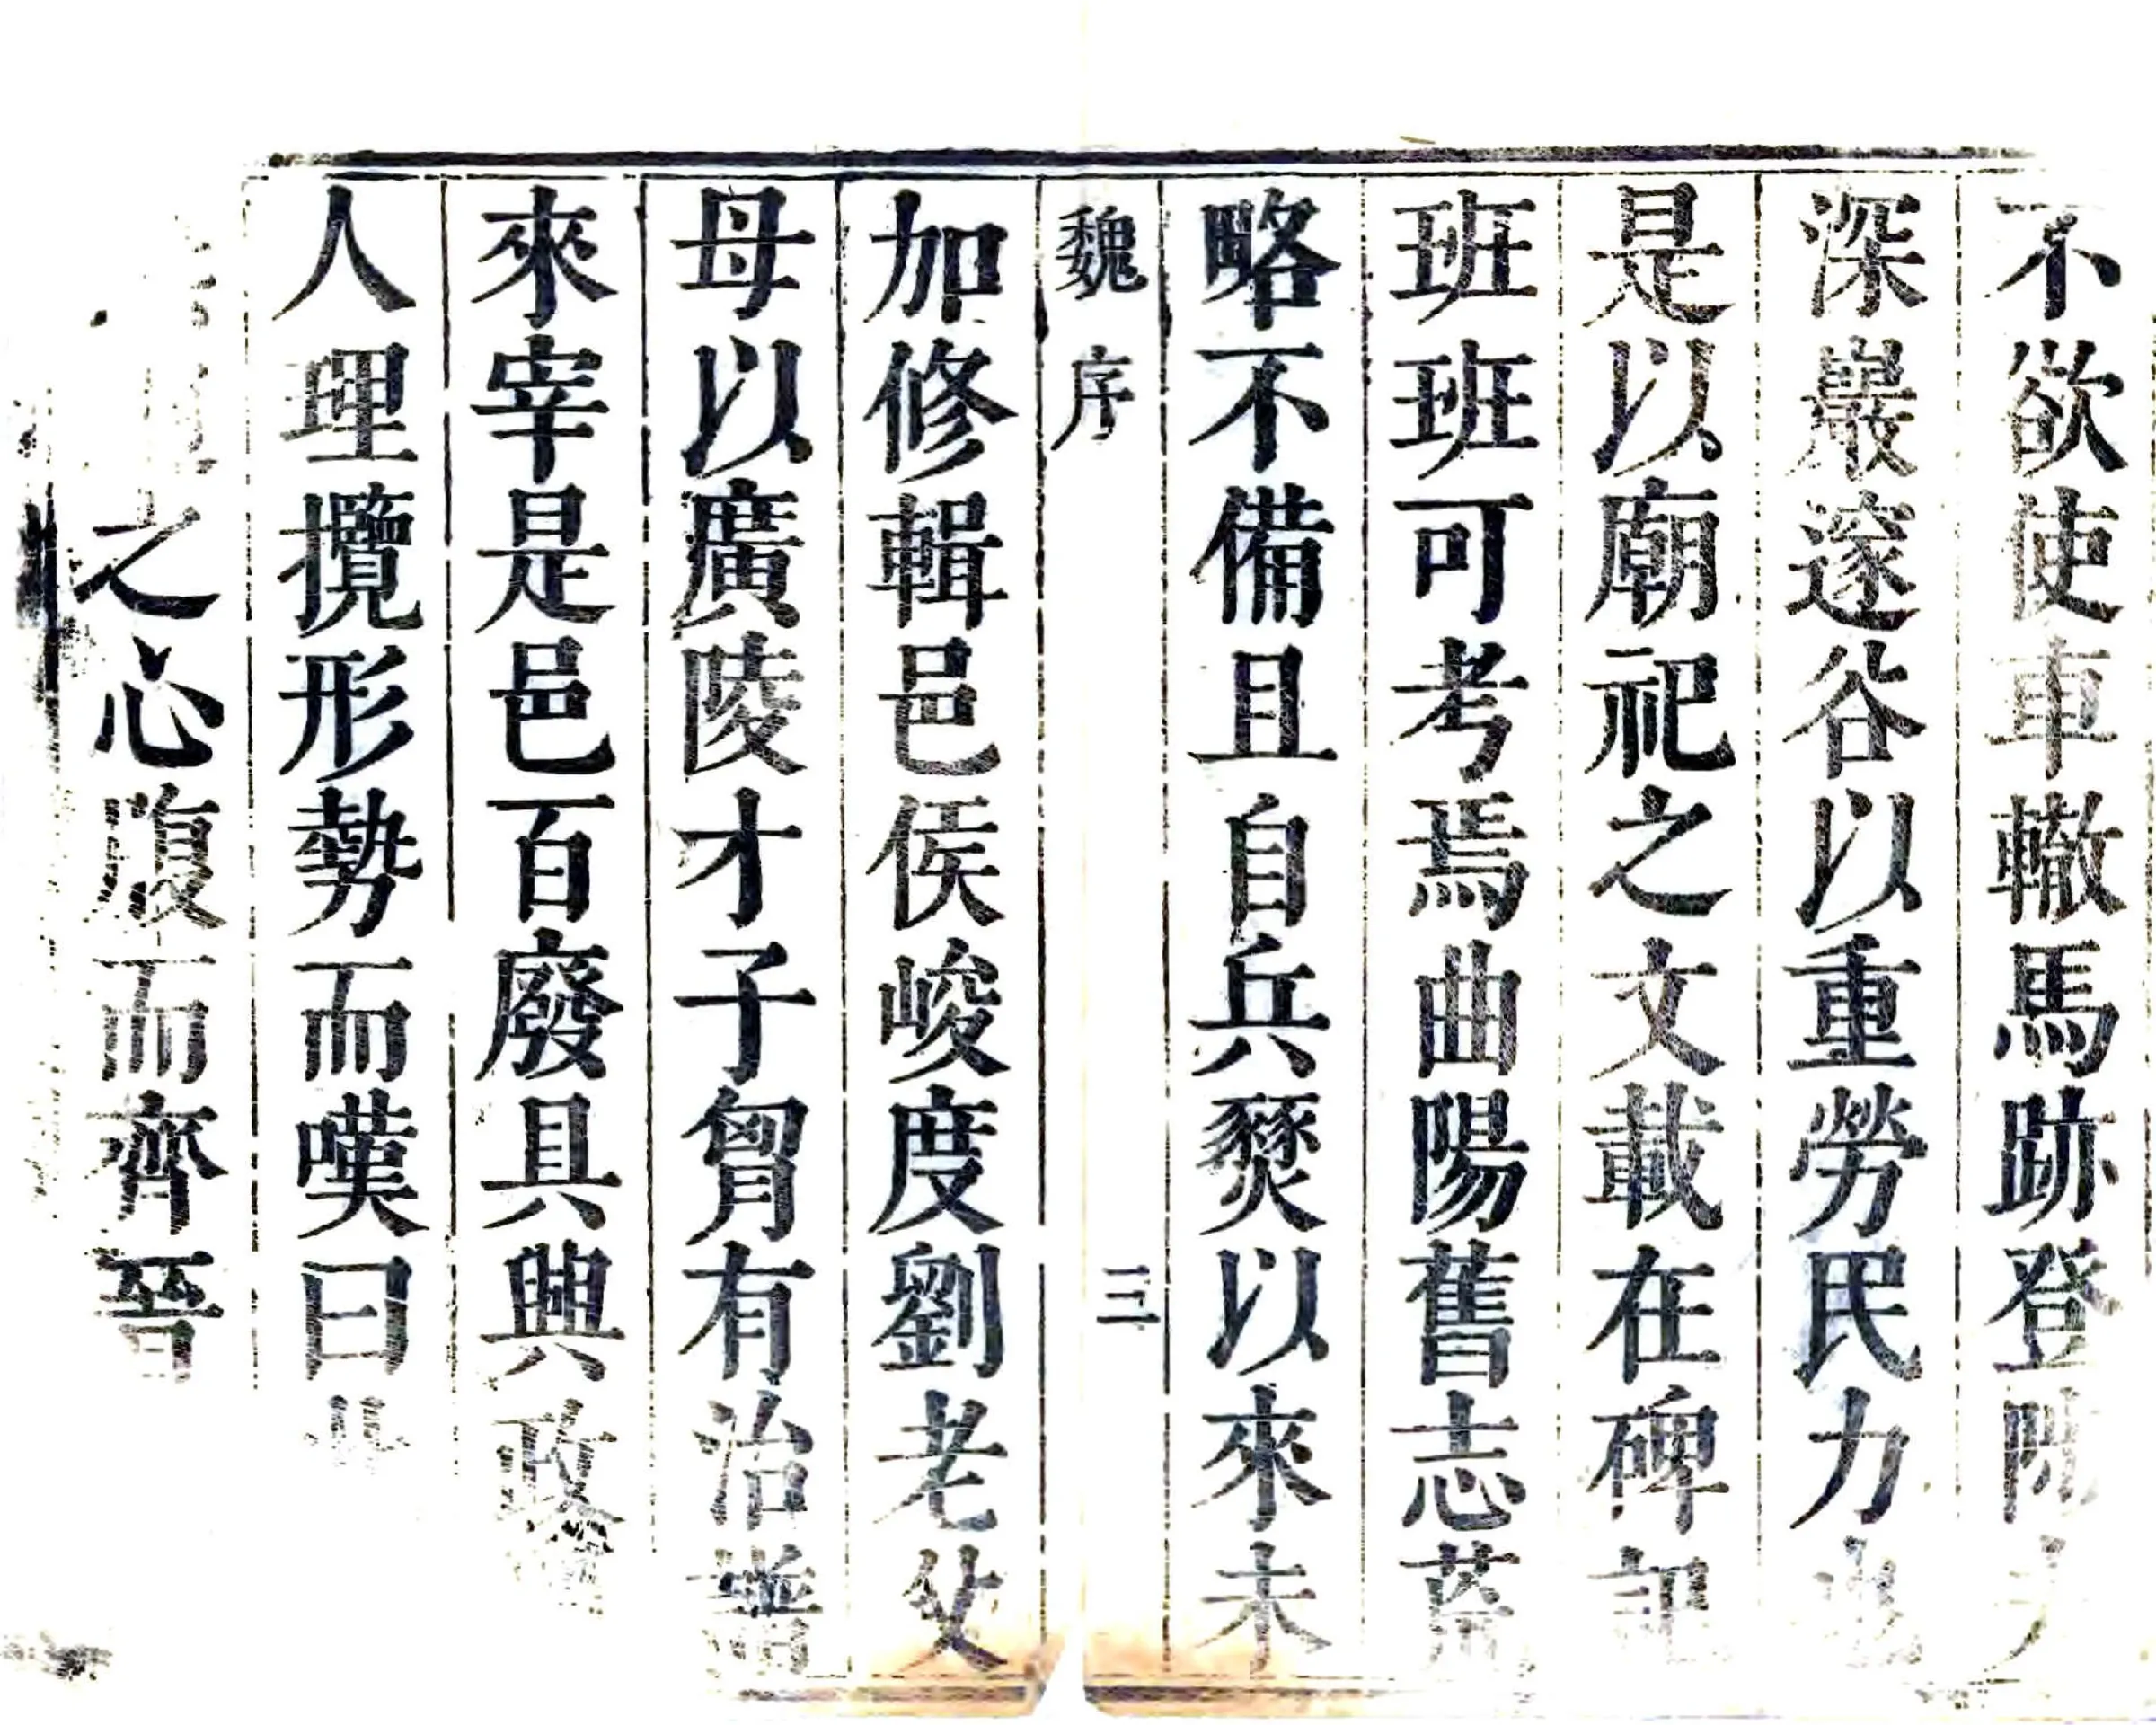 不欲使車轍馬跡登
深巖邃谷以重勞民力
是以廟祀之文載在碑記
班班可考焉曲陽舊志荒
略不備且自兵燹以來未
魏序
三
加修輯邑侯峻度劉老父
母以廣陵才子胷有治譜
來宰是邑百廢具興政
人理攬形勢而嘆曰
之心腹而齊晉